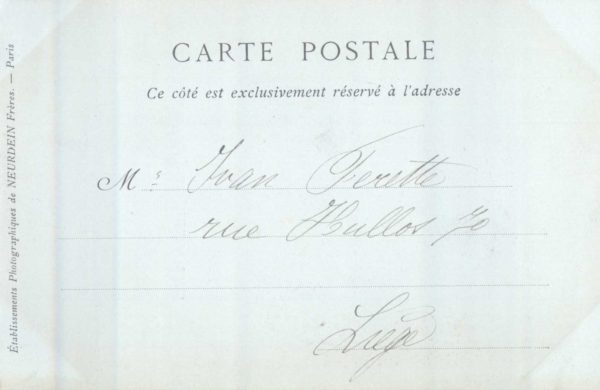 CARTE POSTALE
Ce côté est exclusivement réservé à l'adresse
M^r Ivan Ferette
rue Hullos 70
Liège
Établissements Photographiques de NEURDEIN Frères. — Paris